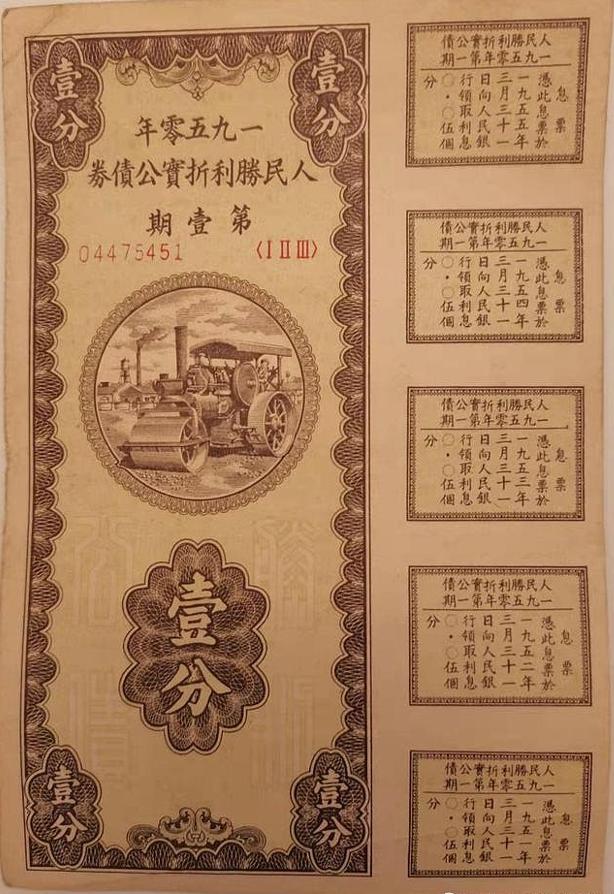 壹分
壹分
一九五零年
人民勝利折實公債券
第壹期
〈I II III〉
04475451
壹分
壹分
壹分
人民勝利折實公債
一九五零年第一期
息票
憑此息票於
一九五五年
三月三十一
日向人民銀
行領取利息
〇·〇伍個
分
人民勝利折實公債
一九五零年第一期
息票
憑此息票於
一九五四年
三月三十一
日向人民銀
行領取利息
〇·〇伍個
分
人民勝利折實公債
一九五零年第一期
息票
憑此息票於
一九五三年
三月三十一
日向人民銀
行領取利息
〇·〇伍個
分
人民勝利折實公債
一九五零年第一期
息票
憑此息票於
一九五二年
三月三十一
日向人民銀
行領取利息
〇·〇伍個
分
人民勝利折實公債
一九五零年第一期
息票
憑此息票於
一九五一年
三月三十一
日向人民銀
行領取利息
〇·〇伍個
分